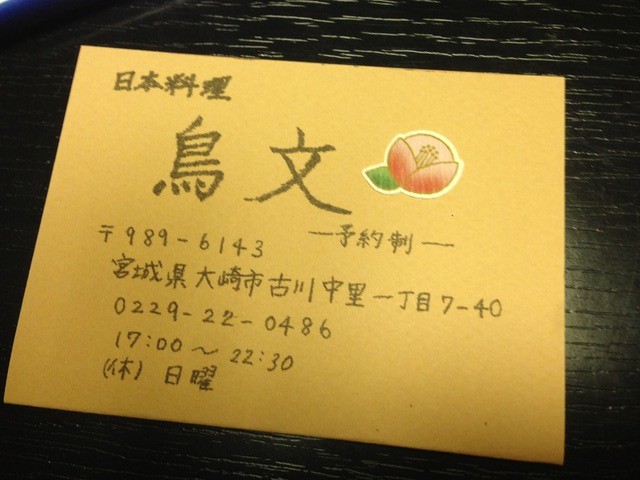 日本料理
鳥文
―予約制―
〒989-6143
宮城県大崎市古川中里一丁目7-40
0229-22-0486
17:00～22:30
(休) 日曜